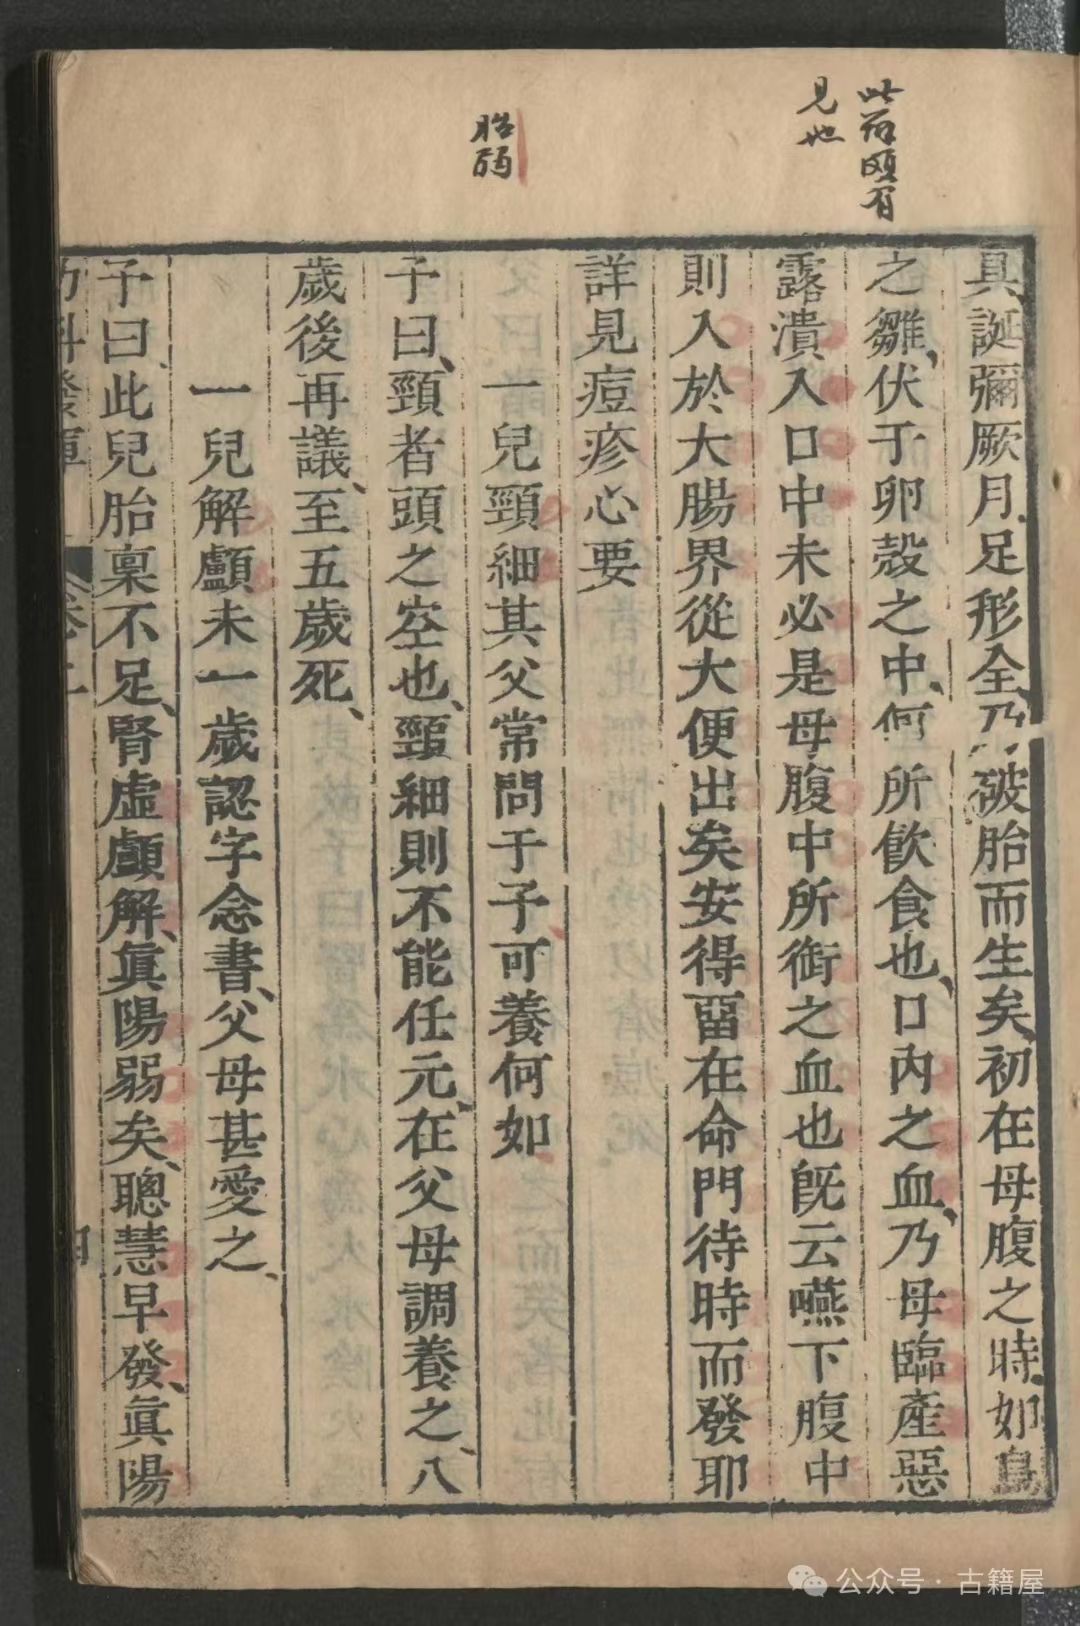 此辯頗有
見也
胎弱
具誕彌厥月足形全乃破胎而生矣初在母腹之時如鳥
之雛伏于卵殼之中何所飲食也口內之血乃母臨產惡
露潰入口中未必是母腹中所銜之血也旣云嚥下腹中
則入於大腸界從大便出矣安得畱在命門待時而發耶
詳見痘疹心要
一兒頸細其父常問于予可養何如
予曰頸者頭之莖也頸細則不能任元在父母調養之八
歲後再議至五歲死
一兒解顱未一歲認字念書父母甚愛之
予曰此兒胎稟不足腎虛顱解眞陽弱矣聰慧早發眞陽
幼科發揮
卷上
四
公众号·古籍屋